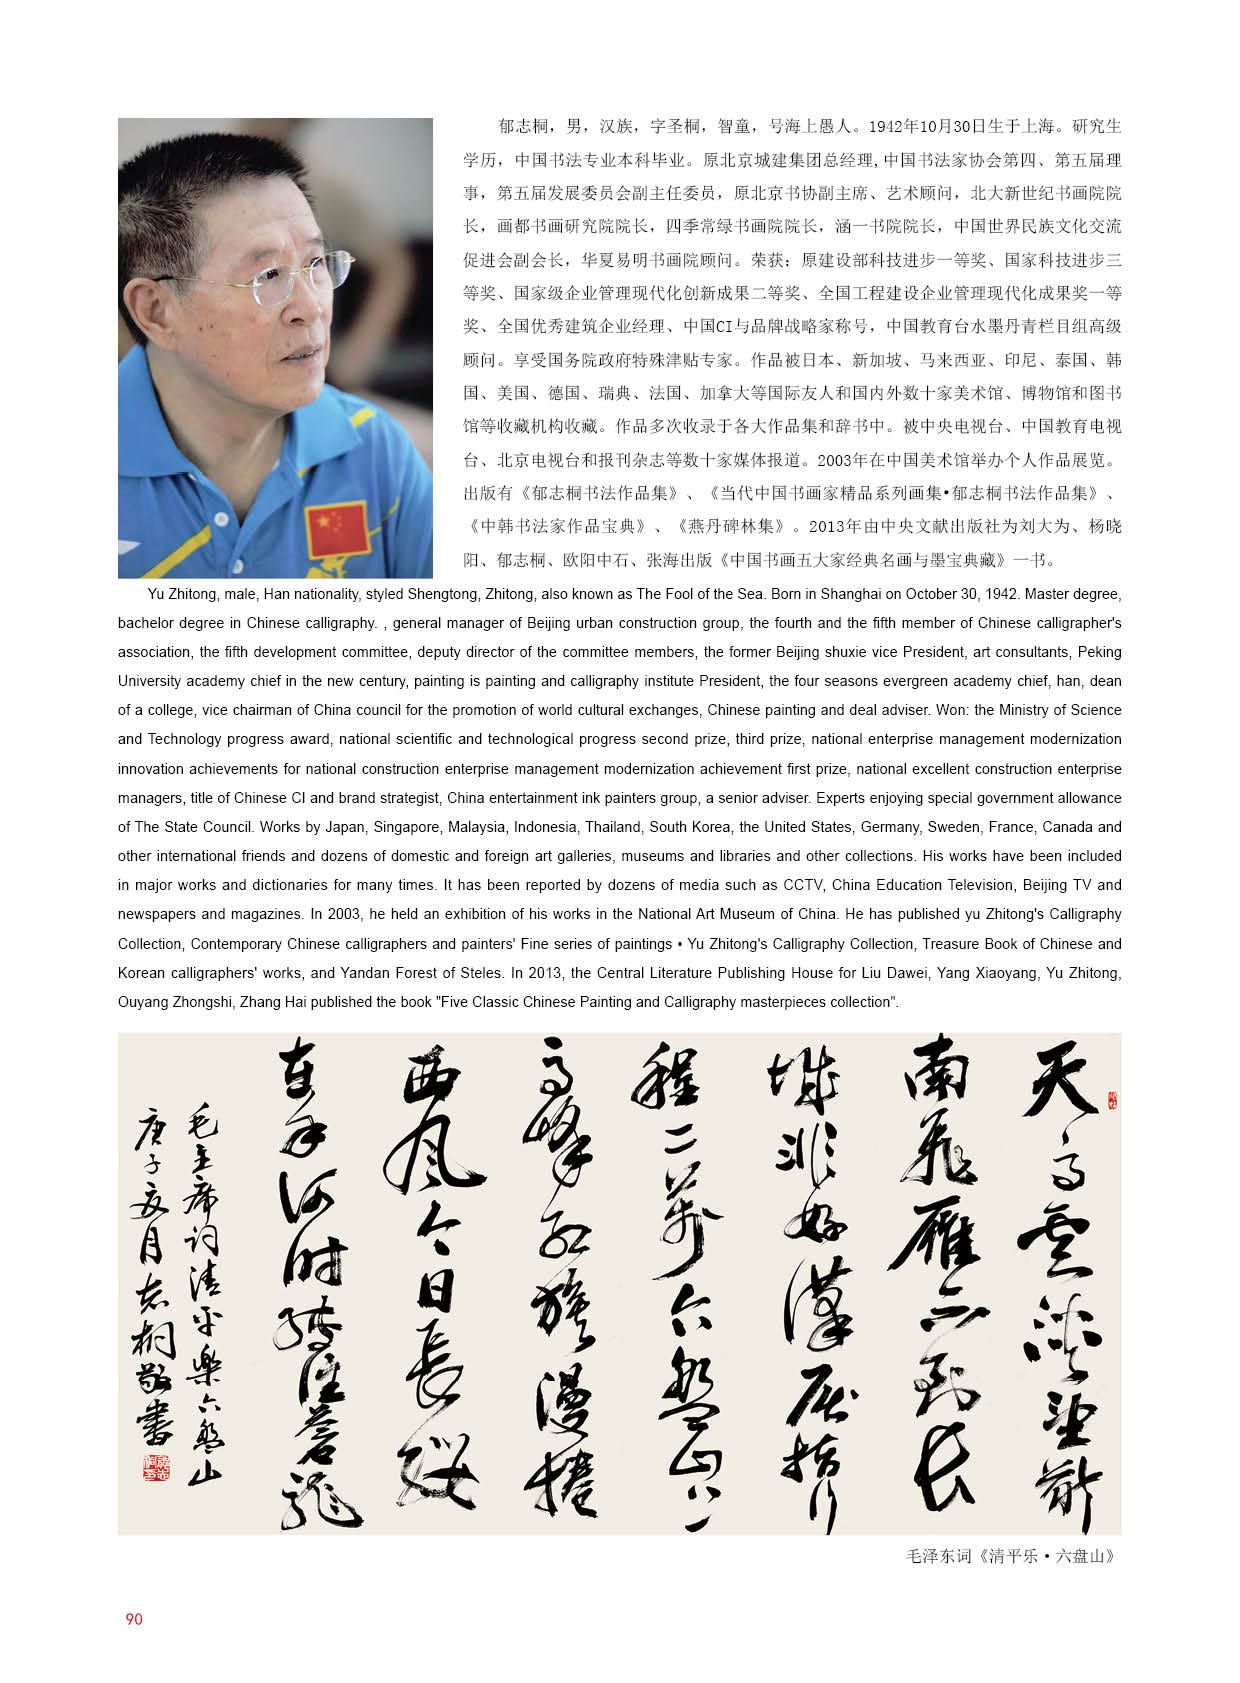 郁志桐，男，汉族，字圣桐，智童，号海上愚人。1942年10月30日生于上海。研究生
学历，中国书法专业本科毕业。原北京城建集团总经理,中国书法家协会第四、第五届理
事，第五届发展委员会副主任委员，原北京书协副主席、艺术顾问，北大新世纪书画院院
长，画都书画研究院院长，四季常绿书画院院长，涵一书院院长，中国世界民族文化交流
促进会副会长，华夏易明书画院顾问。荣获：原建设部科技进步一等奖、国家科技进步三
等奖、国家级企业管理现代化创新成果二等奖、全国工程建设企业管理现代化成果奖一等
奖、全国优秀建筑企业经理、中国CI与品牌战略家称号，中国教育台水墨丹青栏目组高级
顾问。享受国务院政府特殊津贴专家。作品被日本、新加坡、马来西亚、印尼、泰国、韩
国、美国、德国、瑞典、法国、加拿大等国际友人和国内外数十家美术馆、博物馆和图书
馆等收藏机构收藏。作品多次收录于各大作品集和辞书中。被中央电视台、中国教育电视
台、北京电视台和报刊杂志等数十家媒体报道。2003年在中国美术馆举办个人作品展览。
出版有《郁志桐书法作品集》、《当代中国书画家精品系列画集•郁志桐书法作品集》、
《中韩书法家作品宝典》、《燕丹碑林集》。2013年由中央文献出版社为刘大为、杨晓
阳、郁志桐、欧阳中石、张海出版《中国书画五大家经典名画与墨宝典藏》一书。
Yu Zhitong, male, Han nationality, styled Shengtong, Zhitong, also known as The Fool of the Sea. Born in Shanghai on October 30, 1942. Master degree,
bachelor degree in Chinese calligraphy. , general manager of Beijing urban construction group, the fourth and the fifth member of Chinese calligrapher's
association, the fifth development committee, deputy director of the committee members, the former Beijing shuxie vice President, art consultants, Peking
University academy chief in the new century, painting is painting and calligraphy institute President, the four seasons evergreen academy chief, han, dean
of a college, vice chairman of China council for the promotion of world cultural exchanges, Chinese painting and deal adviser. Won: the Ministry of Science
and Technology progress award, national scientific and technological progress second prize, third prize, national enterprise management modernization
innovation achievements for national construction enterprise management modernization achievement first prize, national excellent construction enterprise
managers, title of Chinese CI and brand strategist, China entertainment ink painters group, a senior adviser. Experts enjoying special government allowance
of The State Council. Works by Japan, Singapore, Malaysia, Indonesia, Thailand, South Korea, the United States, Germany, Sweden, France, Canada and
other international friends and dozens of domestic and foreign art galleries, museums and libraries and other collections. His works have been included
in major works and dictionaries for many times. It has been reported by dozens of media such as CCTV, China Education Television, Beijing TV and
newspapers and magazines. In 2003, he held an exhibition of his works in the National Art Museum of China. He has published yu Zhitong's Calligraphy
Collection, Contemporary Chinese calligraphers and painters' Fine series of paintings • Yu Zhitong's Calligraphy Collection, Treasure Book of Chinese and
Korean calligraphers' works, and Yandan Forest of Steles. In 2013, the Central Literature Publishing House for Liu Dawei, Yang Xiaoyang, Yu Zhitong,
Ouyang Zhongshi, Zhang Hai published the book "Five Classic Chinese Painting and Calligraphy masterpieces collection".
天高云淡望断
南飞雁不到长
城非好汉屈指行
程二万六盘山上
高峰红旗漫捲
西风今日长缨
在手何时缚住苍龙
毛主席词清平乐六盘山
庚子亥月志桐敬书
毛泽东词《清平乐·六盘山》
90